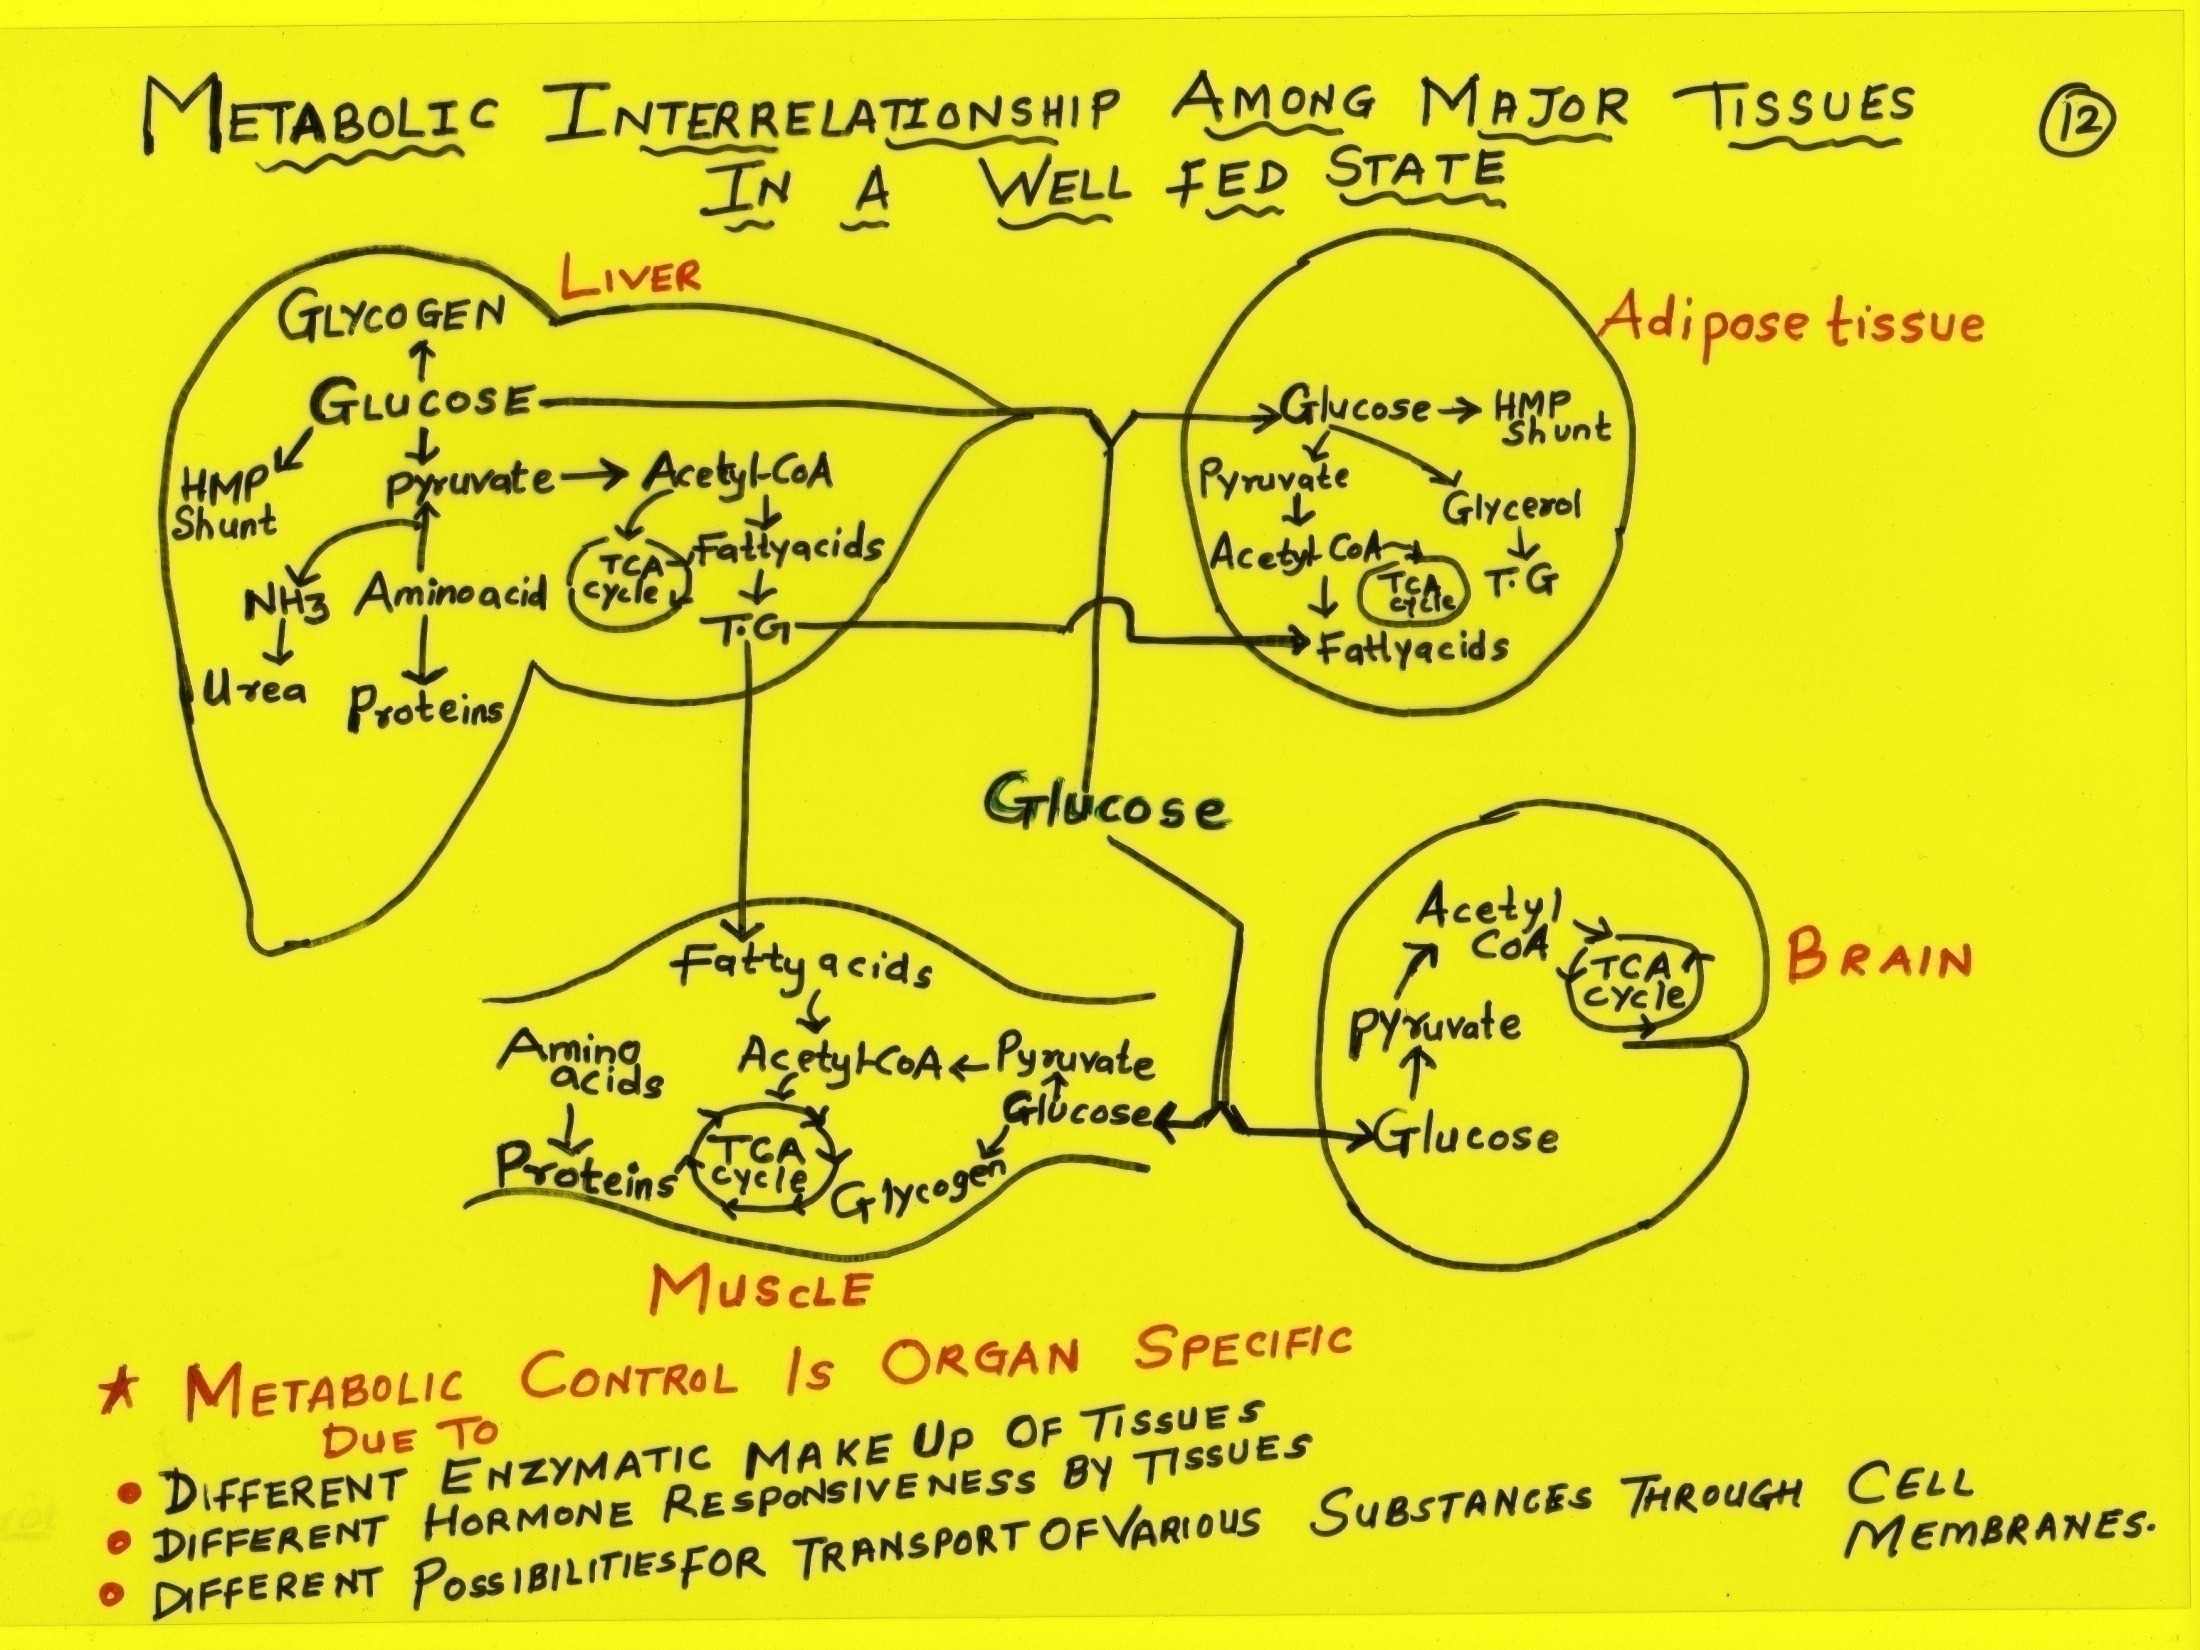 METABOLIC INTERRELATIONSHIP AMONG MAJOR TISSUES
12
IN A WELL FED STATE
LIVER
GLYCOGEN
GLUCOSE
HMP
Shunt
Pyruvate
Acetyl-CoA
TCA
cycle
Fattyacids
T.G
NH3
Aminoacid
Urea
Proteins
Adipose tissue
Glucose
HMP
Shunt
Pyruvate
Glycerol
Acetyl-CoA
TCA
cycle
T.G
Fattyacids
Glucose
BRAIN
Acetyl
CoA
TCA
cycle
Pyruvate
Glucose
Fatty acids
Amino
acids
Acetyl-CoA
Pyruvate
Glucose
Proteins
TCA
cycle
Glycogen
MUSCLE
★ METABOLIC CONTROL IS ORGAN SPECIFIC
DUE TO
• DIFFERENT ENZYMATIC MAKE UP OF TISSUES
• DIFFERENT HORMONE RESPONSIVENESS BY TISSUES
• DIFFERENT POSSIBILITIES FOR TRANSPORT OF VARIOUS SUBSTANCES THROUGH CELL
MEMBRANES.